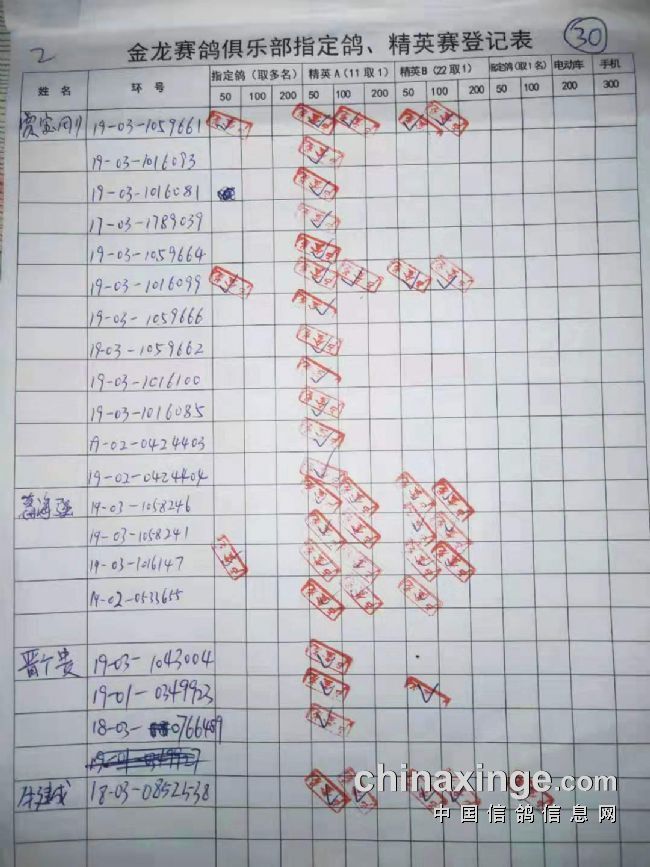 2 金龙赛鸽俱乐部指定鸽、精英赛登记表 30
姓 名 环 号 指定鸽（取多名） 精英A（11取1） 精英B（22取1） 指定鸽（取1名） 电动车 手机
50 100 200 50 100 200 50 100 200 50 100 200 300
贾宝刚 19-03-1059661
19-03-1016093
19-03-1016081
17-03-1789039
19-03-1059664
19-03-1016099
19-03-1059666
19-03-1059662
19-03-1016100
19-03-1016085
19-02-0424403
19-02-0424404
海强 19-03-1058246
19-03-1058241
19-03-1016147
19-02-0533655
贵 19-03-1043004
19-01-0349923
18-03-0766489
18-03-0852538
chinaxinge.com
中国信鸽信息网